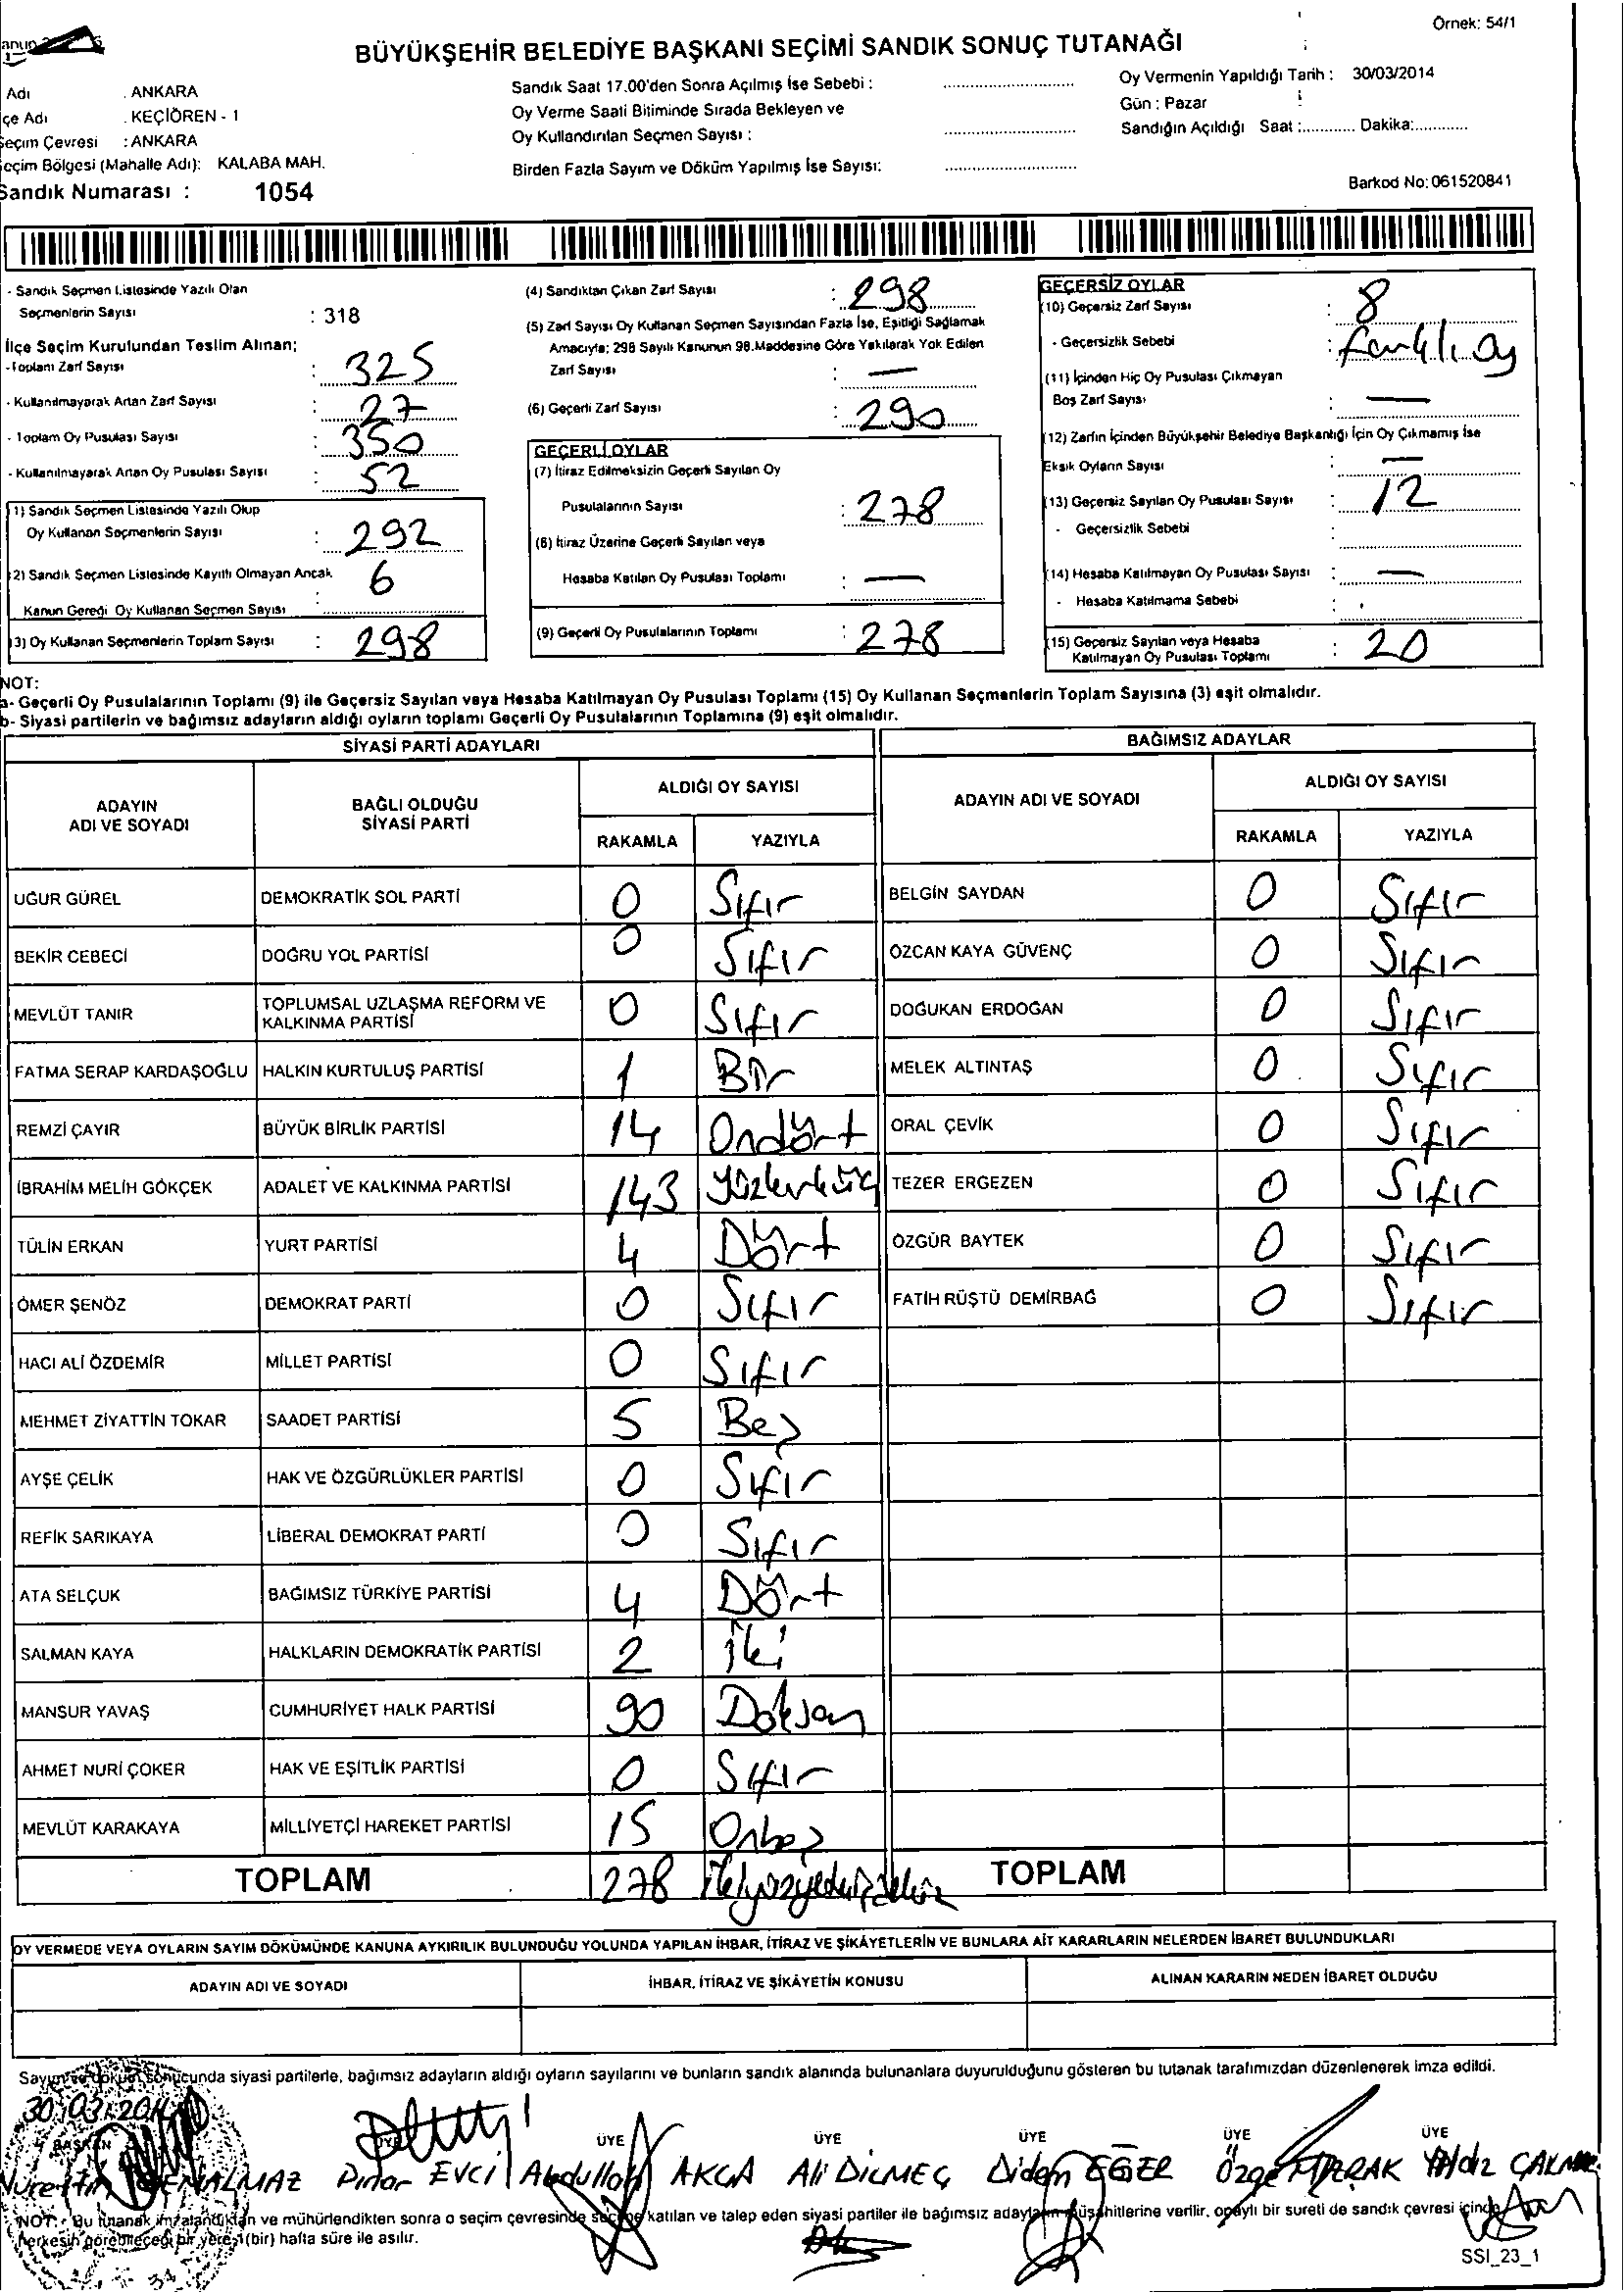 Örnek: 54/1
BÜYÜKŞEHİR BELEDİYE BAŞKANI SEÇİMİ SANDIK SONUÇ TUTANAĞI
Adı : ANKARA
çe Adı : KEÇİÖREN - 1
Seçim Çevresi : ANKARA
eçim Bölgesi (Mahalle Adı): KALABA MAH.
Sandık Numarası : 1054
Sandık Saat 17.00'den Sonra Açılmış İse Sebebi :
Oy Verme Saati Bitiminde Sırada Bekleyen ve
Oy Kullandırılan Seçmen Sayısı :
Birden Fazla Sayım ve Döküm Yapılmış İse Sayısı:
Oy Vermenin Yapıldığı Tarih : 30/03/2014
Gün : Pazar
Sandığın Açıldığı Saat :............ Dakika:...........
Barkod No: 061520841
- Sandık Seçmen Listesinde Yazılı Olan
Seçmenlerin Sayısı : 318
İlçe Seçim Kurulundan Teslim Alınan;
-Toplam Zarf Sayısı : 325
- Kullanılmayarak Artan Zarf Sayısı : 27
- Toplam Oy Pusulası Sayısı : 350
- Kullanılmayarak Artan Oy Pusulası Sayısı : 52
(1) Sandık Seçmen Listesinde Yazılı Olup
Oy Kullanan Seçmenlerin Sayısı : 292
(2) Sandık Seçmen Listesinde Kayıtlı Olmayan Ancak
Kanun Gereği Oy Kullanan Seçmen Sayısı : 6
(3) Oy Kullanan Seçmenlerin Toplam Sayısı : 298
(4) Sandıktan Çıkan Zarf Sayısı : 298
(5) Zarf Sayısı Oy Kullanan Seçmen Sayısından Fazla İse, Eşitliği Sağlamak
Amacıyla; 298 Sayılı Kanunun 98.Maddesine Göre Yakılarak Yok Edilen
Zarf Sayısı : —
(6) Geçerli Zarf Sayısı : 290
GEÇERLİ OYLAR
(7) İtiraz Edilmeksizin Geçerli Sayılan Oy
Pusulalarının Sayısı : 278
(8) İtiraz Üzerine Geçerli Sayılan veya
Hesaba Katılan Oy Pusulası Toplamı : —
(9) Geçerli Oy Pusulalarının Toplamı : 278
GEÇERSİZ OYLAR
(10) Geçersiz Zarf Sayısı : 8
- Geçersizlik Sebebi : Farklı Oy
(11) İçinden Hiç Oy Pusulası Çıkmayan
Boş Zarf Sayısı : —
(12) Zarfın İçinden Büyükşehir Belediye Başkanlığı İçin Oy Çıkmamış İse
Eksik Oyların Sayısı —
(13) Geçersiz Sayılan Oy Pusulası Sayısı : 12
- Geçersizlik Sebebi :
(14) Hesaba Katılmayan Oy Pusulası Sayısı : —
- Hesaba Katılmama Sebebi :
(15) Geçersiz Sayılan veya Hesaba
Katılmayan Oy Pusulası Toplamı : 20
NOT:
a- Geçerli Oy Pusulalarının Toplamı (9) ile Geçersiz Sayılan veya Hesaba Katılmayan Oy Pusulası Toplamı (15) Oy Kullanan Seçmenlerin Toplam Sayısına (3) eşit olmalıdır.
b- Siyasi partilerin ve bağımsız adayların aldığı oyların toplamı Geçerli Oy Pusulalarının Toplamına (9) eşit olmalıdır.
SİYASİ PARTİ ADAYLARI BAĞIMSIZ ADAYLAR
ADAYIN ADI VE SOYADI BAĞLI OLDUĞU SİYASİ PARTİ ALDIĞI OY SAYISI ADAYIN ADI VE SOYADI ALDIĞI OY SAYISI
RAKAMLA YAZIYLA RAKAMLA YAZIYLA
UĞUR GÜREL DEMOKRATİK SOL PARTİ 0 Sıfır BELGİN SAYDAN 0 Sıfır
BEKİR CEBECİ DOĞRU YOL PARTİSİ 0 Sıfır ÖZCAN KAYA GÜVENÇ 0 Sıfır
MEVLÜT TANIR TOPLUMSAL UZLAŞMA REFORM VE KALKINMA PARTİSİ 0 Sıfır DOĞUKAN ERDOĞAN 0 Sıfır
FATMA SERAP KARDAŞOĞLU HALKIN KURTULUŞ PARTİSİ 1 Bir MELEK ALTINTAŞ 0 Sıfır
REMZİ ÇAYIR BÜYÜK BİRLİK PARTİSİ 14 Ondört ORAL ÇEVİK 0 Sıfır
İBRAHİM MELİH GÖKÇEK ADALET VE KALKINMA PARTİSİ 143 Yüzkırküç TEZER ERGEZEN 0 Sıfır
TÜLİN ERKAN YURT PARTİSİ 4 Dört ÖZGÜR BAYTEK 0 Sıfır
ÖMER ŞENÖZ DEMOKRAT PARTİ 0 Sıfır FATİH RÜŞTÜ DEMİRBAĞ 0 Sıfır
HACI ALİ ÖZDEMİR MİLLET PARTİSİ 0 Sıfır
MEHMET ZİYATTİN TOKAR SAADET PARTİSİ 5 Beş
AYŞE ÇELİK HAK VE ÖZGÜRLÜKLER PARTİSİ 0 Sıfır
REFİK SARIKAYA LİBERAL DEMOKRAT PARTİ 0 Sıfır
ATA SELÇUK BAĞIMSIZ TÜRKİYE PARTİSİ 4 Dört
SALMAN KAYA HALKLARIN DEMOKRATİK PARTİSİ 2 İki
MANSUR YAVAŞ CUMHURİYET HALK PARTİSİ 90 Doksan
AHMET NURİ ÇOKER HAK VE EŞİTLİK PARTİSİ 0 Sıfır
MEVLÜT KARAKAYA MİLLİYETÇİ HAREKET PARTİSİ 15 Onbeş
TOPLAM 278 İkiyüzyetmişsekiz TOPLAM
OY VERMEDE VEYA OYLARIN SAYIM DÖKÜMÜNDE KANUNA AYKIRILIK BULUNDUĞU YOLUNDA YAPILAN İHBAR, İTİRAZ VE ŞİKÂYETLERİN VE BUNLARA AİT KARARLARIN NELERDEN İBARET BULUNDUKLARI
ADAYIN ADI VE SOYADI İHBAR, İTİRAZ VE ŞİKÂYETİN KONUSU ALINAN KARARIN NEDEN İBARET OLDUĞU
Sayım ve döküm sonucunda siyasi partilerle, bağımsız adayların aldığı oyların sayılarını ve bunların sandık alanında bulunanlara duyurulduğunu gösteren bu tutanak tarafımızdan düzenlenerek imza edildi.
30.03.2014
BAŞKAN ÜYE ÜYE ÜYE ÜYE ÜYE ÜYE
Nurettin Pınar EVCİ Abdullah AKCA Ali DİLMEÇ Didem EĞER Özge Yıldız
NOT: Bu tutanak imzalandıktan ve mühürlendikten sonra o seçim çevresinde seçime katılan ve talep eden siyasi partiler ile bağımsız adayların müşahitlerine verilir, onaylı bir sureti de sandık çevresi içinde
herkesin görebileceği bir yere 1(bir) hafta süre ile asılır.
SSI_23_1